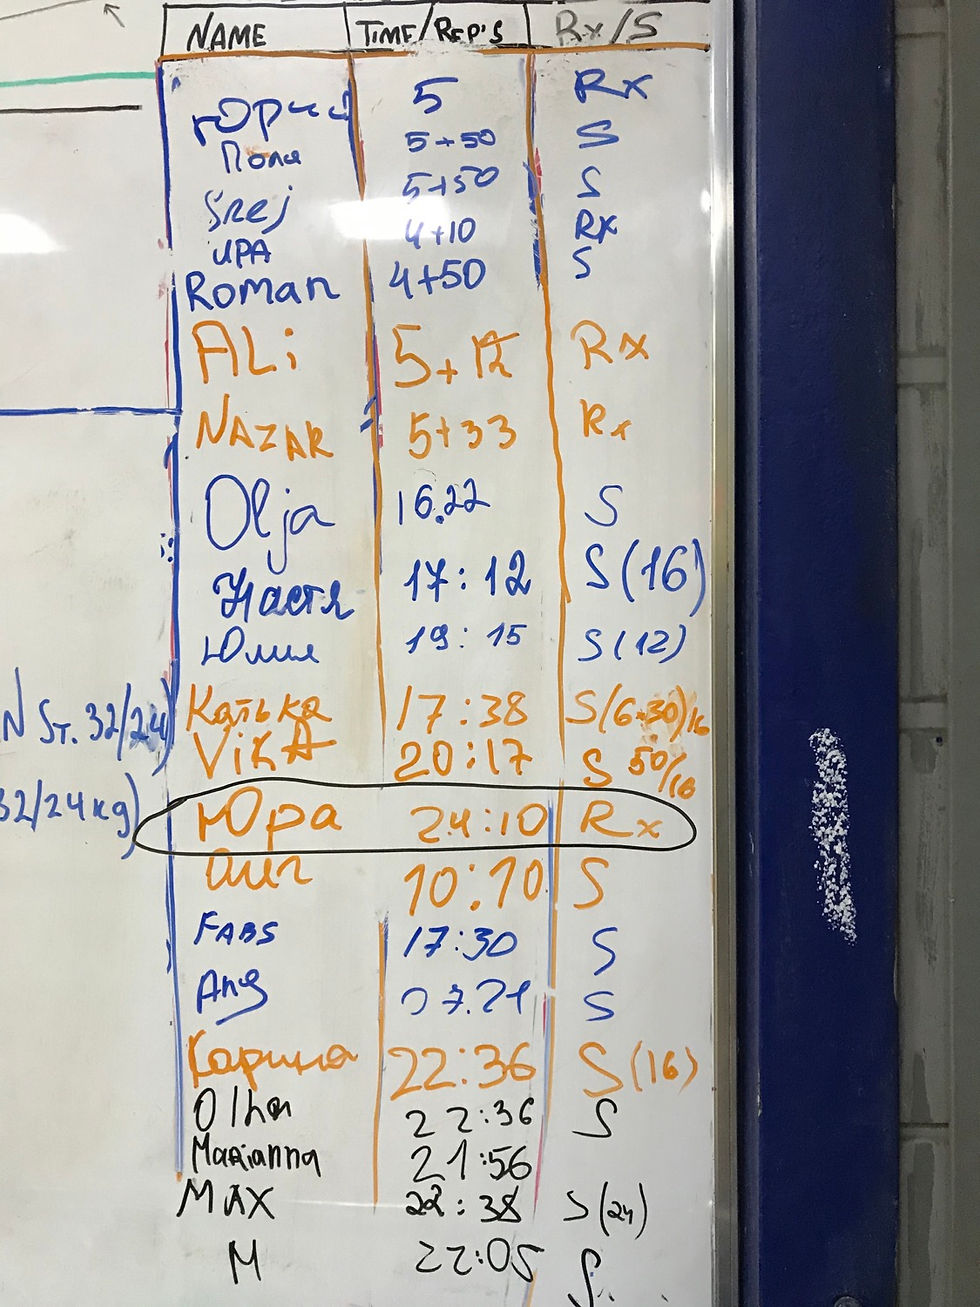 NAME TIME/REP'S Rx/S
Юрий 5 Rx
Поля 5+50 S
Srej 5+50 S
UPA 4+10 Rx
Roman 4+50 S
ALi 5+12 Rx
NAZAR 5+33 Rx
Olja 16.22 S
Настя 17:12 S(16)
Юлия 19:15 S(12)
Катька 17:38 S(6-30)16
N ST. 32/24)
ViKA 20:17 S 50/16
32/24kg)
Юра 24:10 Rx
10:10 S
FABS 17:30 S
S
Карина 22:36 S(16)
Olha 22:36 S
Marianna 21:56
MAX 22:38 S(24)
M 22:05 S